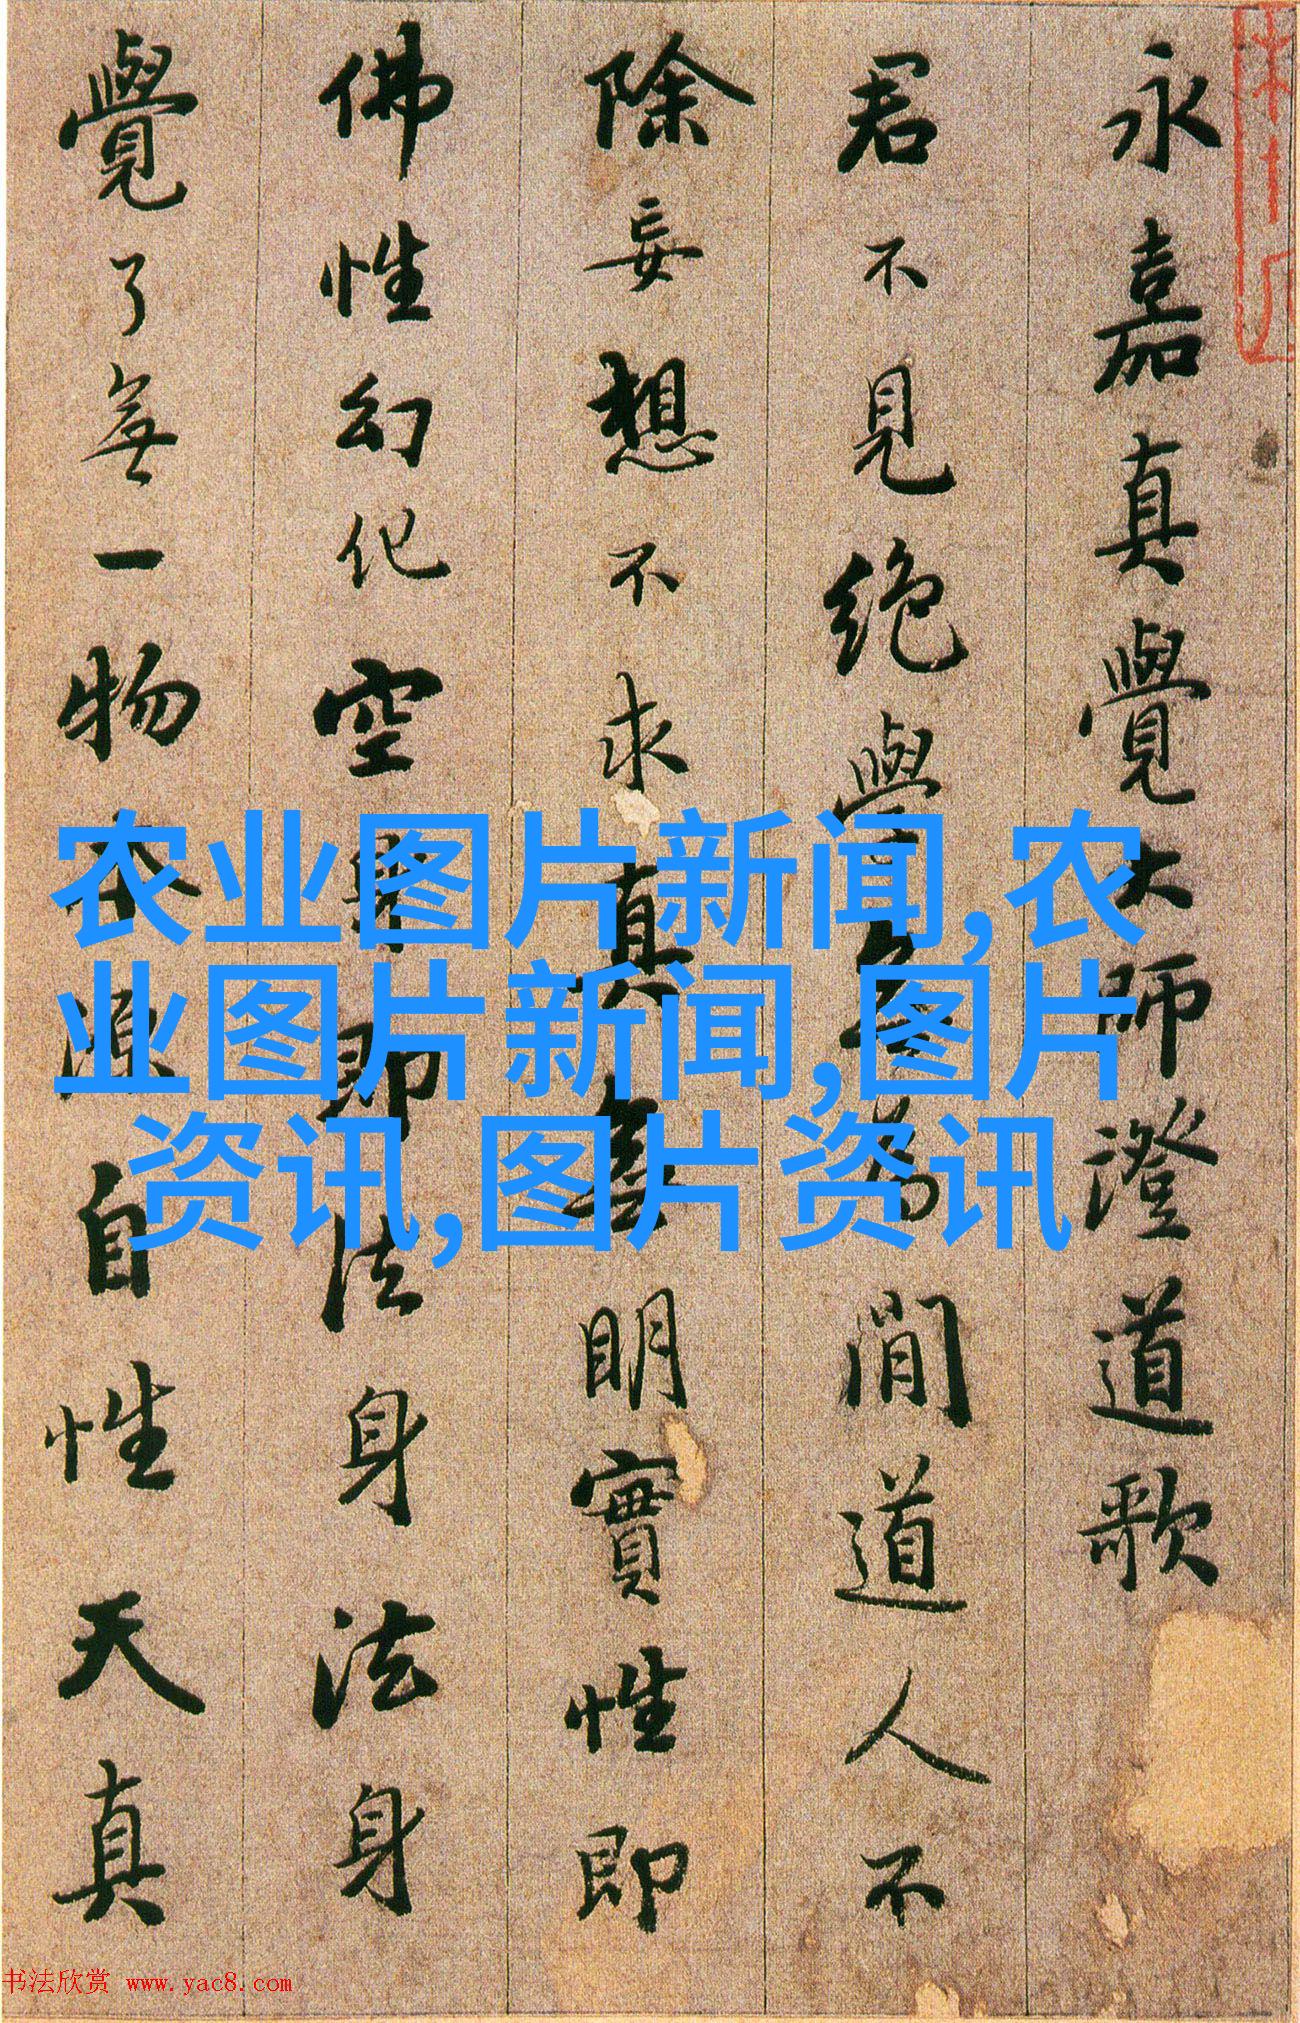 永嘉真覺大師澄道歌
君不見絶學無為閒道人不
除妄想不求真無明實性即
佛性幻化空身即法身法身
覺了無一物本源自性天真
农业图片新闻,农
业图片新闻,图片
资讯,图片资讯
书法欣赏 www.yac8.com